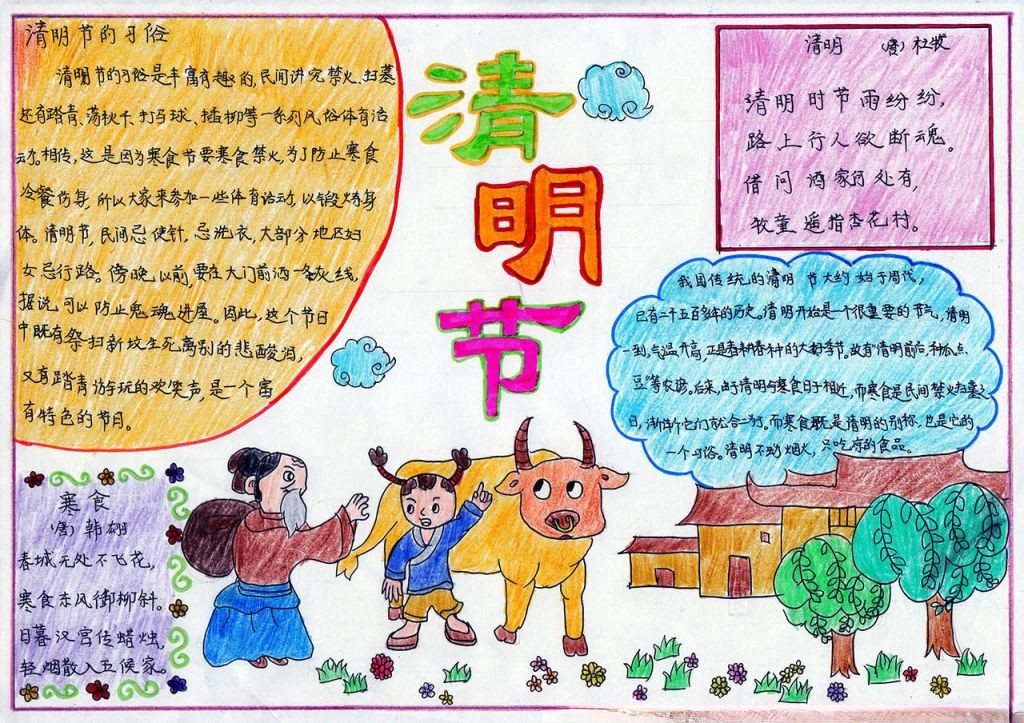 清明节的习俗
清明节的习俗是丰富有趣的,民间讲究禁火、扫墓
还有踏青、荡秋千、打马球、插柳等一系列风俗体育活
动。相传,这是因为寒食节要寒食禁火,为了防止寒食
冷餐伤身,所以大家来参加一些体育活动,以锻炼身
体。清明节,民间忌使针,忌洗衣,大部分地区妇
女忌行路。傍晚,以前,要在大门前洒一条灰线,
据说可以防止鬼魂进屋。因此,这个节日
中既有祭扫新坟生死离别的悲酸泪,
又有踏青游玩的欢笑声,是一个富
有特色的节日。
清
明
节
清明 (唐)杜牧
清明时节雨纷纷,
路上行人欲断魂。
借问酒家何处有,
牧童遥指杏花村。
我国传统的清明节大约始于周代,
已有二千五百多年的历史。清明开始是一个很重要的节气,清明
一到,气温升高,正是春耕春种的大好季节。故有"清明前后,种瓜点
豆"等农谚。后来,由于清明与寒食日子相近,而寒食是民间禁火扫墓之
日,渐渐它们就合二为一。而寒食既是清明的别称,也是它的
一个习俗。清明不动烟火,只吃凉的食品。
寒食
(唐)韩翃
春城无处不飞花,
寒食东风御柳斜。
日暮汉宫传蜡烛,
轻烟散入五侯家。